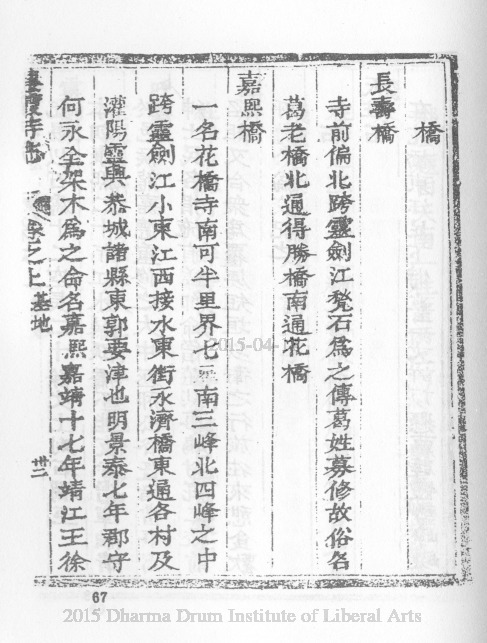 橋
長壽橋
寺前偏北跨靈劍江甃石爲之傳葛姓募修故俗名
葛老橋北通得勝橋南通花橋
嘉熙橋
一名花橋寺南可半里界七星南三峰北四峰之中
跨靈劍江小東江西接水東街永濟橋東通各村及
灌陽靈興恭城諸縣東郭要津也明景泰七年郡守
何永全架木爲之命名嘉熙嘉靖十七年靖江王徐
棲霞寺志 卷之上 基地 卅二
67
2015-04
2015 Dharma Drum Institute of Liberal Arts